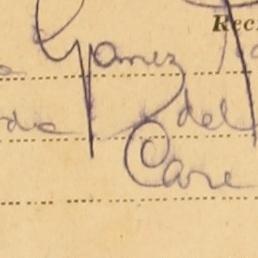 Rec
Gomez
da del
Care